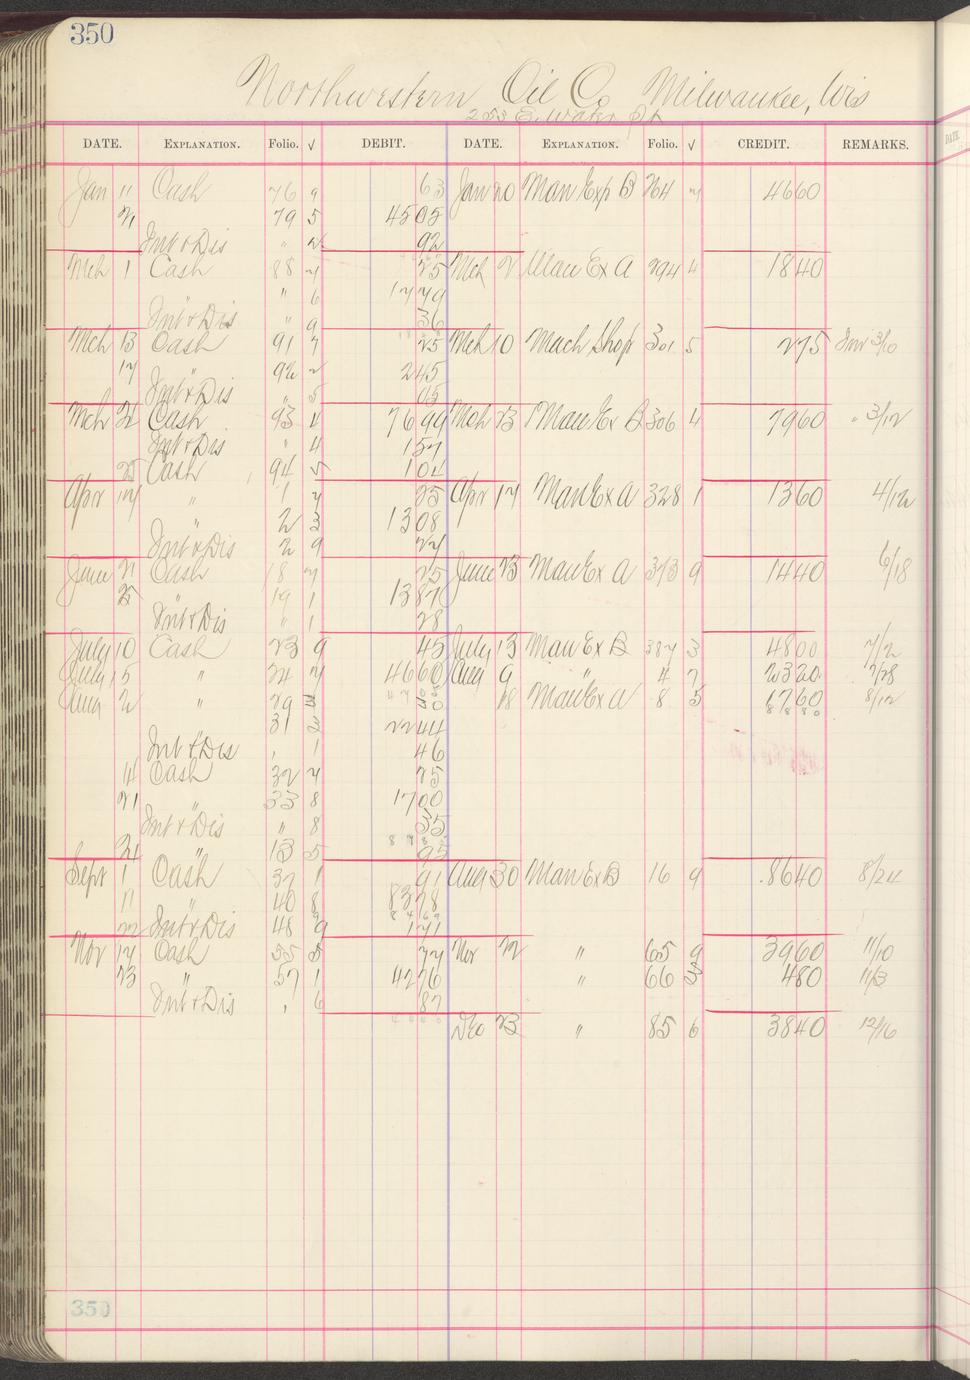 350
Northwestern Oil Co Milwaukee, Wis
253 E. Water St
DATE. EXPLANATION. Folio. √ DEBIT. DATE. EXPLANATION. Folio. √ CREDIT. REMARKS.
Jan 11 Cash 76 9 63 Jan 20 Man Exp B 264 7 4660
21 79 5 4505
Int & Dis " 2 92
Mch 1 Cash 88 7 25 Mch 2 Man Ex A 294 4 1840
" 6 1779
Int & Dis " 9 36
Mch 13 Cash 91 7 25 Mch 10 Mach Shop 301 5 275 Inv 3/10
17 " 92 2 245
Int & Dis " 5 05
Mch 21 Cash 93 4 7699 Mch 23 Man Ex B 306 4 7960 " 3/12
Int & Dis " 4 157
25 Cash 94 5 104
Apr 17 " 1 7 25 Apr 17 Man Ex A 328 1 1360 4/12
" 2 3 1308
Int & Dis 2 9 27
June 21 Cash 18 7 25 June 23 Man Ex A 373 9 1440 6/18
25 " 19 1 1387
Int & Dis " 1 28
July 10 Cash 23 9 45 July 13 Man Ex B 387 3 4800 7/2
July 15 " 24 7 4660 Aug 9 " 4 7 2320 7/28
Aug 2 " 29 30 18 Man Ex A 8 5 1760 8/12
31 2 2244 8880
Int & Dis " 1 46
14 Cash 32 7 25
21 " 33 8 1700
Int & Dis " 8 35
24 " 13 5 95
Sept 1 Cash 37 1 91 Aug 30 Man Ex B 16 9 8640 8/24
11 " 40 8 8378
22 Int & Dis 48 9 171
Nov 17 Cash 55 8 77 Nov 12 " 65 9 3960 11/10
23 " 57 1 4276 " 66 3 480 11/13
Int & Dis " 6 87
Dec 23 " 85 6 3840 12/16
350